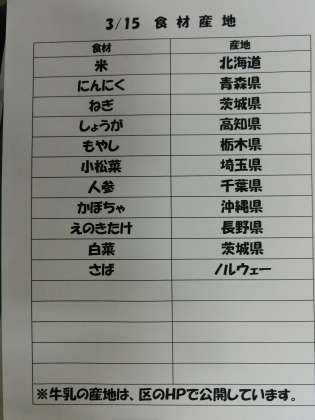 3/15 食材産地
食材 産地
米 北海道
にんにく 青森県
ねぎ 茨城県
しょうが 高知県
もやし 栃木県
小松菜 埼玉県
人参 千葉県
かぼちゃ 沖縄県
えのきたけ 長野県
白菜 茨城県
さば ノルウェー
※牛乳の産地は、区のHPで公開しています。